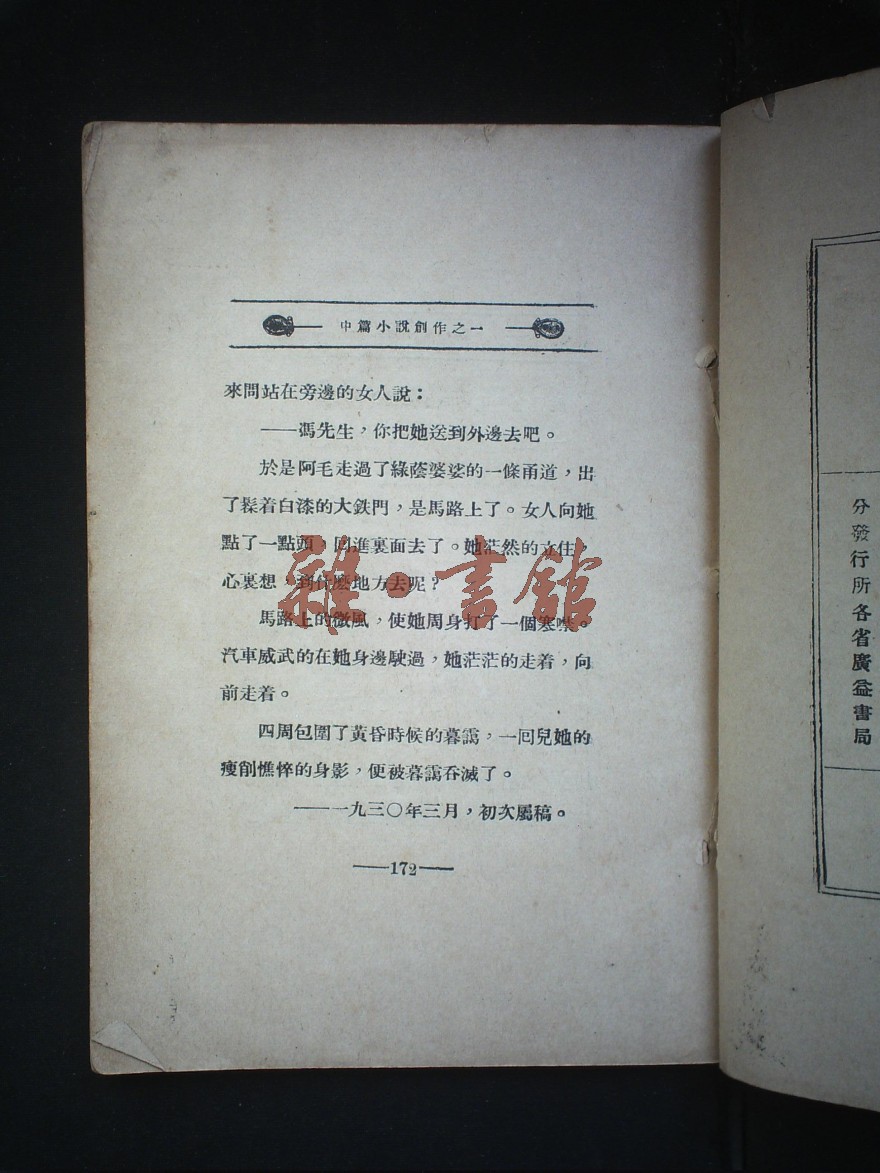 中篇小說創作之一
來問站在旁邊的女人說：
——馮先生，你把她送到外邊去吧。
於是阿毛走過了綠蔭婆娑的一條甬道，出
了髹着白漆的大鉄門，是馬路上了。女人向她
點了一點頭，回進裏面去了。她茫然的立住，
心裏想，到什麽地方去呢？
馬路上的微風，使她周身打了一個寒噤。
汽車威武的在她身邊駛過，她茫茫的走着，向
前走着。
四周包圍了黃昏時候的暮靄，一回兒她的
瘦削憔悴的身影，便被暮靄吞滅了。
——一九三〇年三月，初次屬稿。
——172——
雜·書館
分發行所各省廣益書局